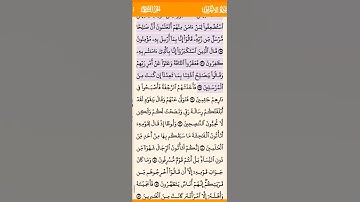 ٱسۡتُضۡعِفُواْ لِمَنۡ ءَامَنَ مِنۡهُمۡ أَتَعۡلَمُونَ أَنَّ صَٰلِحٗا
مُّرۡسَلٞ مِّن رَّبِّهِۦۚ قَالُوٓاْ إِنَّا بِمَآ أُرۡسِلَ بِهِۦ مُؤۡمِنُونَ
قَالَ ٱلَّذِينَ ٱسۡتَكۡبَرُوٓاْ إِنَّا بِٱلَّذِيٓ ءَامَنتُم بِهِۦ
كَٰفِرُونَ فَعَقَرُواْ ٱلنَّاقَةَ وَعَتَوۡاْ عَنۡ أَمۡرِ رَبِّهِمۡ
وَقَالُواْ يَٰصَٰلِحُ ٱئۡتِنَا بِمَا تَعِدُنَآ إِن كُنتَ مِنَ
ٱلۡمُرۡسَلِينَ فَأَخَذَتۡهُمُ ٱلرَّجۡفَةُ فَأَصۡبَحُواْ فِي
دَارِهِمۡ جَٰثِمِينَ فَتَوَلَّىٰ عَنۡهُمۡ وَقَالَ يَٰقَوۡمِ لَقَدۡ
أَبۡلَغۡتُكُمۡ رِسَالَةَ رَبِّي وَنَصَحۡتُ لَكُمۡ وَلَٰكِن
لَّا تُحِبُّونَ ٱلنَّٰصِحِينَ وَلُوطًا إِذۡ قَالَ لِقَوۡمِهِۦٓ
أَتَأۡتُونَ ٱلۡفَٰحِشَةَ مَا سَبَقَكُم بِهَا مِنۡ أَحَدٖ مِّنَ
ٱلۡعَٰلَمِينَ إِنَّكُمۡ لَتَأۡتُونَ ٱلرِّجَالَ شَهۡوَةٗ مِّن
دُونِ ٱلنِّسَآءِۚ بَلۡ أَنتُمۡ قَوۡمٞ مُّسۡرِفُونَ وَمَا كَانَ
جَوَابَ قَوۡمِهِۦٓ إِلَّآ أَن قَالُوٓاْ أَخۡرِجُوهُم مِّن
قَرۡيَتِكُمۡۖ إِنَّهُمۡ أُنَاسٞ يَتَطَهَّرُونَ فَأَنجَيۡنَٰهُ
وَأَهۡلَهُۥٓ إِلَّا ٱمۡرَأَتَهُۥ كَانَتۡ مِنَ ٱلۡغَٰبِرِينَ